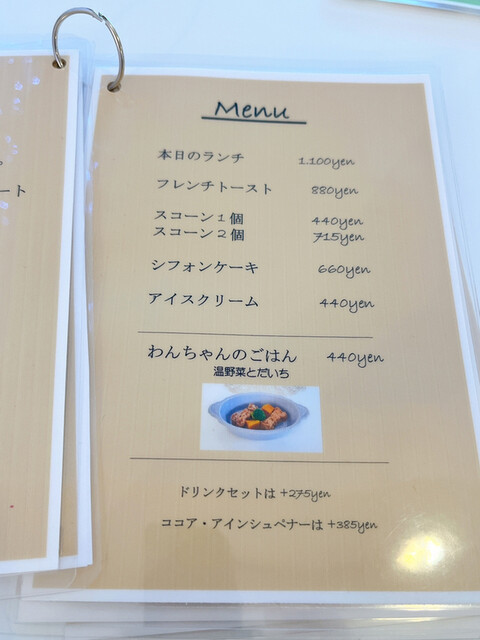 ート
Menu
本日のランチ 1.100yen
フレンチトースト 880yen
スコーン1個 440yen
スコーン2個 715yen
シフォンケーキ 660yen
アイスクリーム 440yen
わんちゃんのごはん 440yen
温野菜とだいち
ドリンクセットは +275yen
ココア・アインシュペナーは +385yen